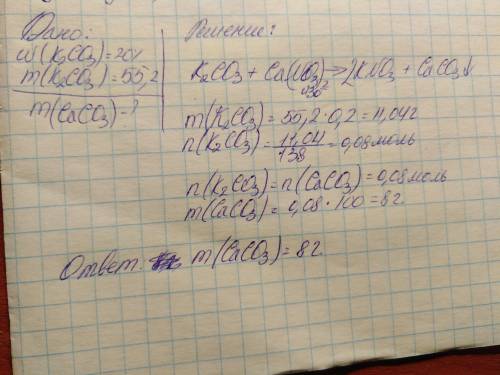 Дано:
w(K2CO3)=20%
m(K2CO3)=55,2
m(CaCO3)-?
Решение:
K2CO3+Ca(NO3)2→2KNO3+CaCO3↓
m(K2CO3)=55,2·0,2=11,04г
n(K2CO3)=11,04/138=0,08моль
n(K2CO3)=n(CaCO3)=0,08моль
m(CaCO3)=0,08·100=8г.
Ответ: m(CaCO3)=8г.